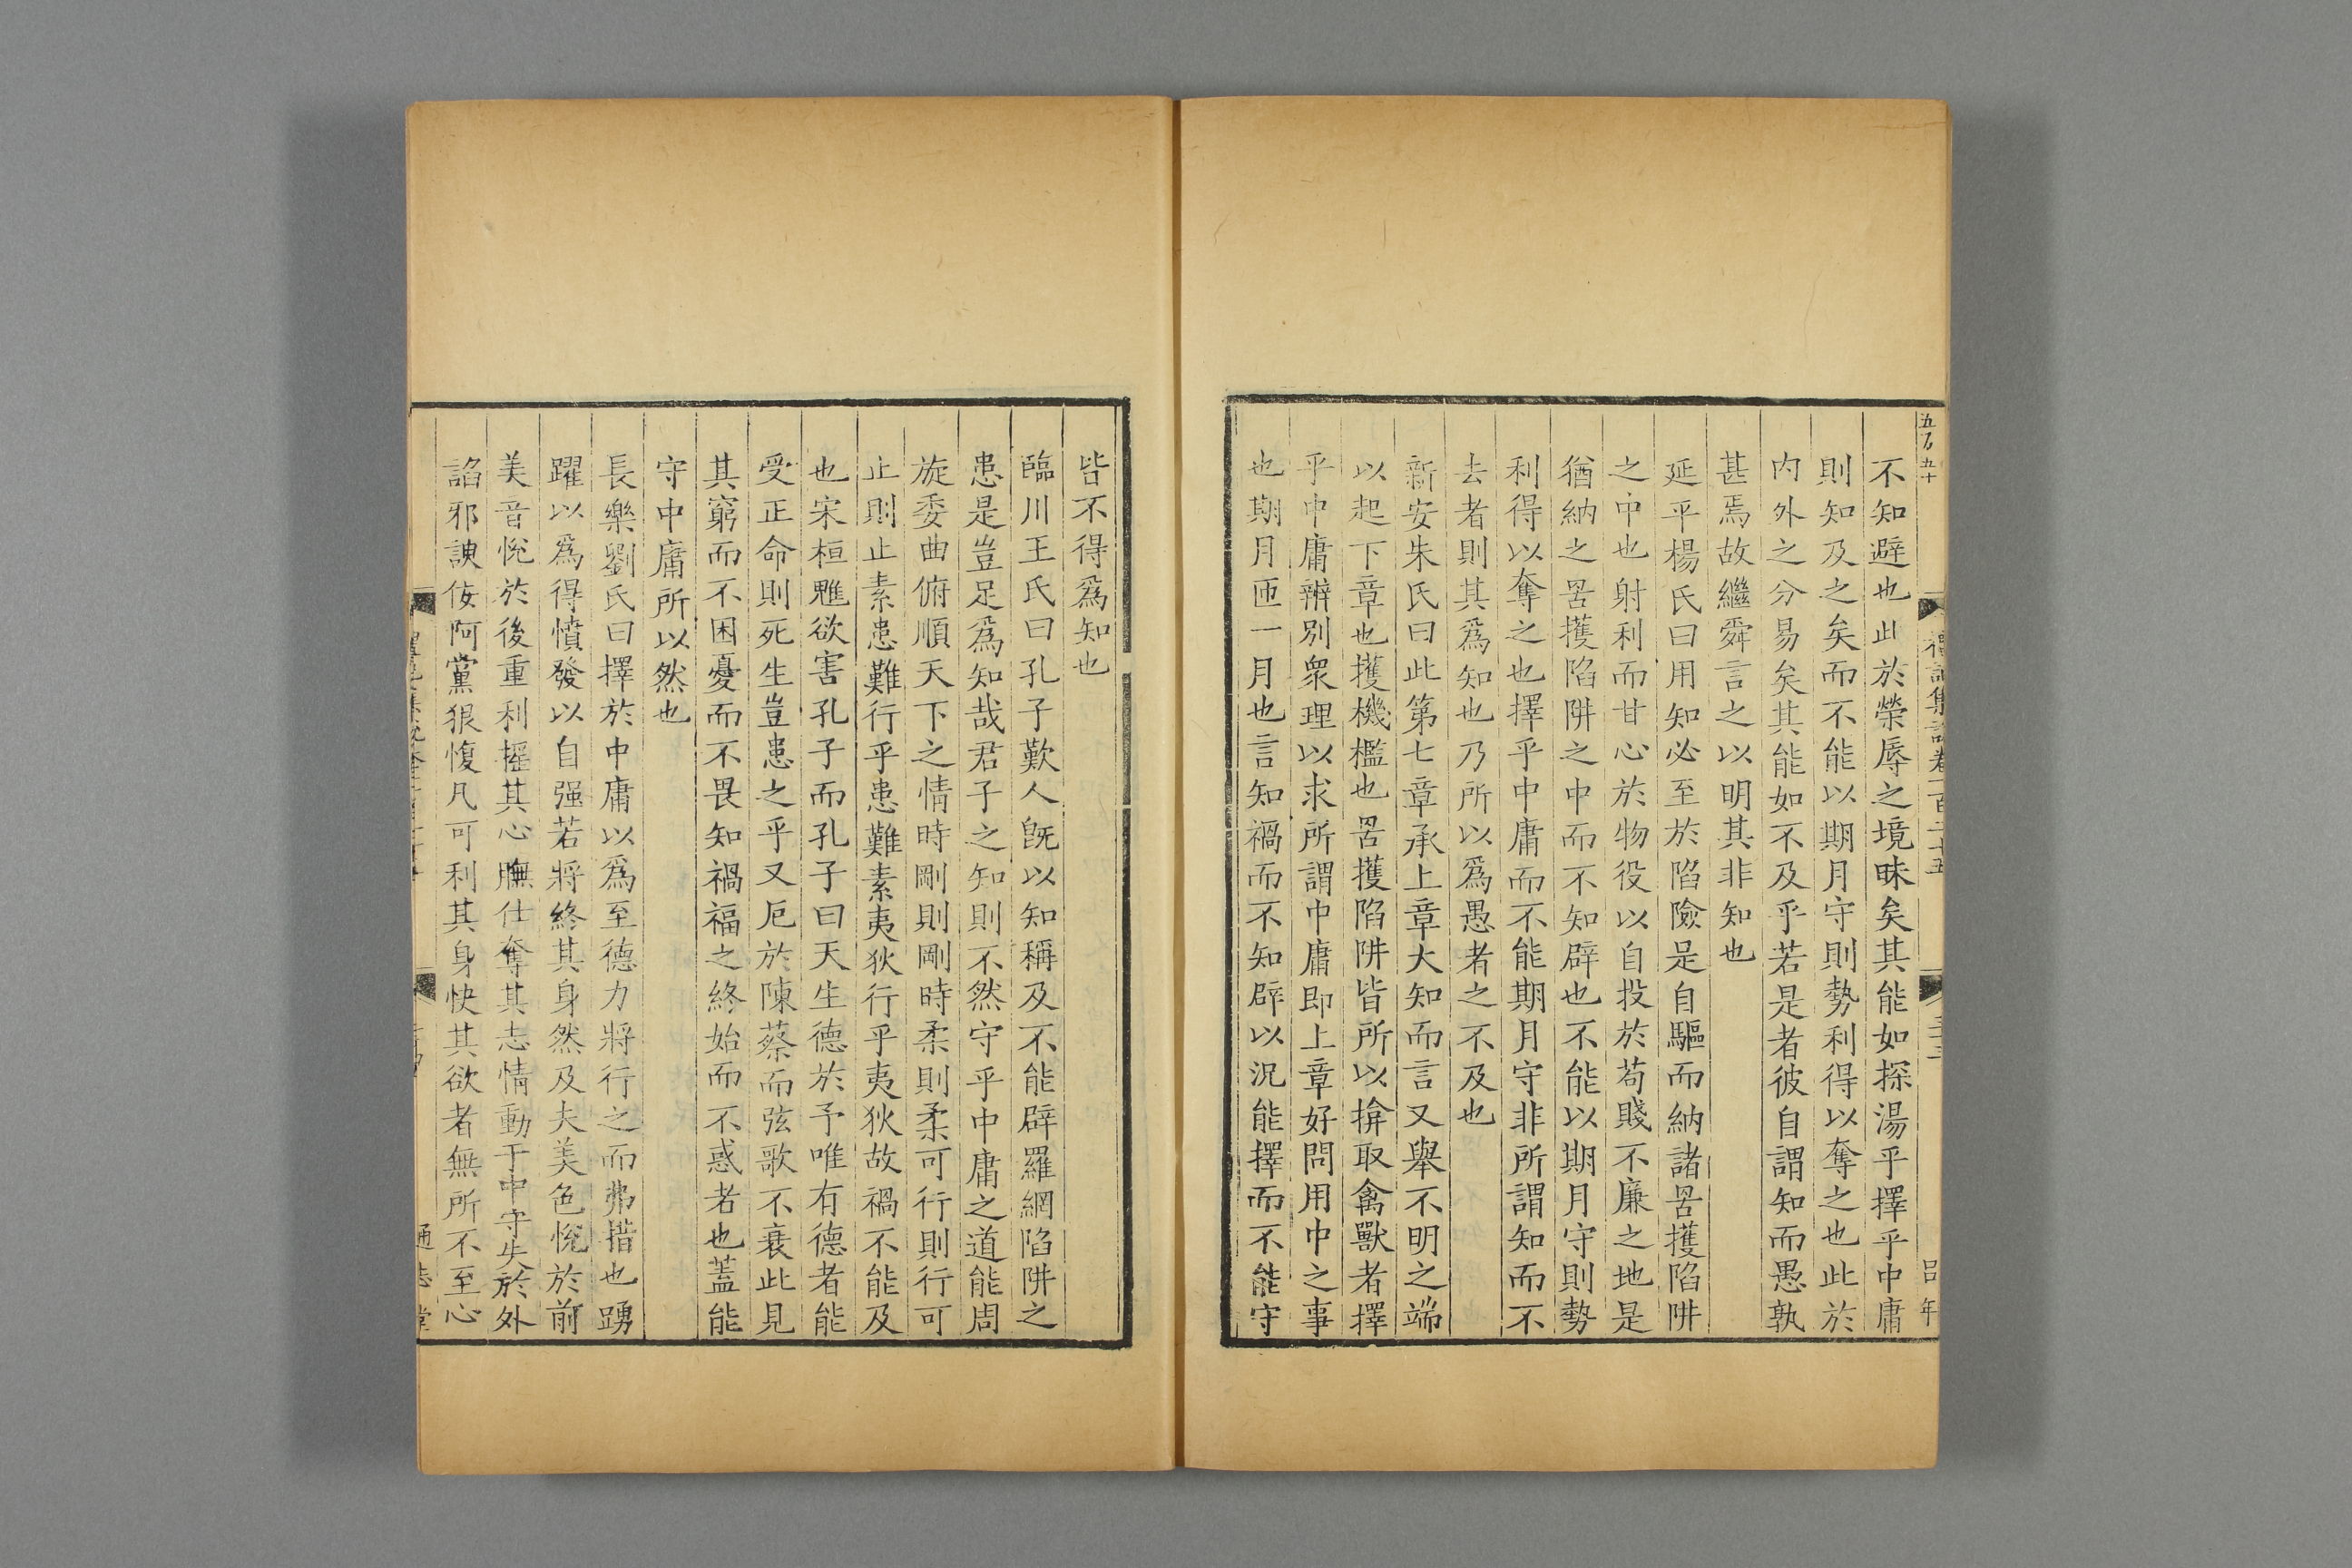 五百五十
禮記集說卷一百二十五
三十三
呂年
不知避也此於榮辱之境昧矣其能如探湯乎擇乎中庸
則知及之矣而不能以期月守則勢利得以奪之也此於
內外之分易矣其能如不及乎若是者彼自謂知而愚孰
甚焉故繼舜言之以明其非知也
延平楊氏曰用知必至於陷險是自驅而納諸罟擭陷阱
之中也射利而甘心於物役以自投於苟賤不廉之地是
猶納之罟擭陷阱之中而不知辟也不能以期月守則勢
利得以奪之也擇乎中庸而不能期月守非所謂知而不
去者則其為知也乃所以為愚者之不及也
新安朱氏曰此第七章承上章大知而言又舉不明之端
以起下章也擭機檻也罟擭陷阱皆所以揜取禽獸者擇
乎中庸辨別衆理以求所謂中庸即上章好問用中之事
也期月匝一月也言知禍而不知辟以況能擇而不能守
皆不得爲知也
臨川王氏曰孔子歎人旣以知稱及不能辟羅網陷阱之
患是豈足爲知哉君子之知則不然守乎中庸之道能周
旋委曲俯順天下之情時剛則剛時柔則柔可行則行可
止則止素患難行乎患難素夷狄行乎夷狄故禍不能及
也宋桓魋欲害孔子而孔子曰天生德於予唯有德者能
受正命則死生豈患之乎又厄於陳蔡而弦歌不衰此見
其窮而不困憂而不畏知禍福之終始而不惑者也蓋能
守中庸所以然也
長樂劉氏曰擇於中庸以爲至德力將行之而弗措也踴
躍以爲得憤發以自强若將終其身然及夫美色悅於前
美音悅於後重利搖其心膴仕奪其志情動于中守失於外
諂邪諛佞阿黨狠愎凡可利其身快其欲者無所不至心
通志堂